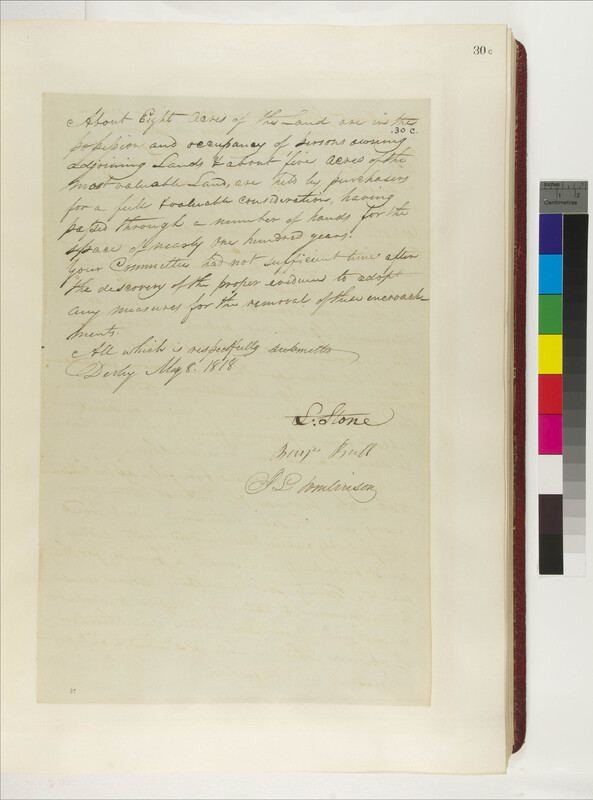 30 c
About Eight Acres of the Land are in the
30 c.
possession and occupancy of persons owning
adjoining Lands & about five acres of the
most valuable Land, are held by purchasers
for a full & valuable consideration, having
passed through a number of hands for the
space of nearly one hundred years.
Your Committee had not sufficient time after
the descovery of the proper evidence to adopt
any measures for the removal of these encroach
ments.
All which is respectfully submitted
Derby May 8. 1818
S. Stone
Benjn
J L Tomlinson
Inches
1
2
Centimetres